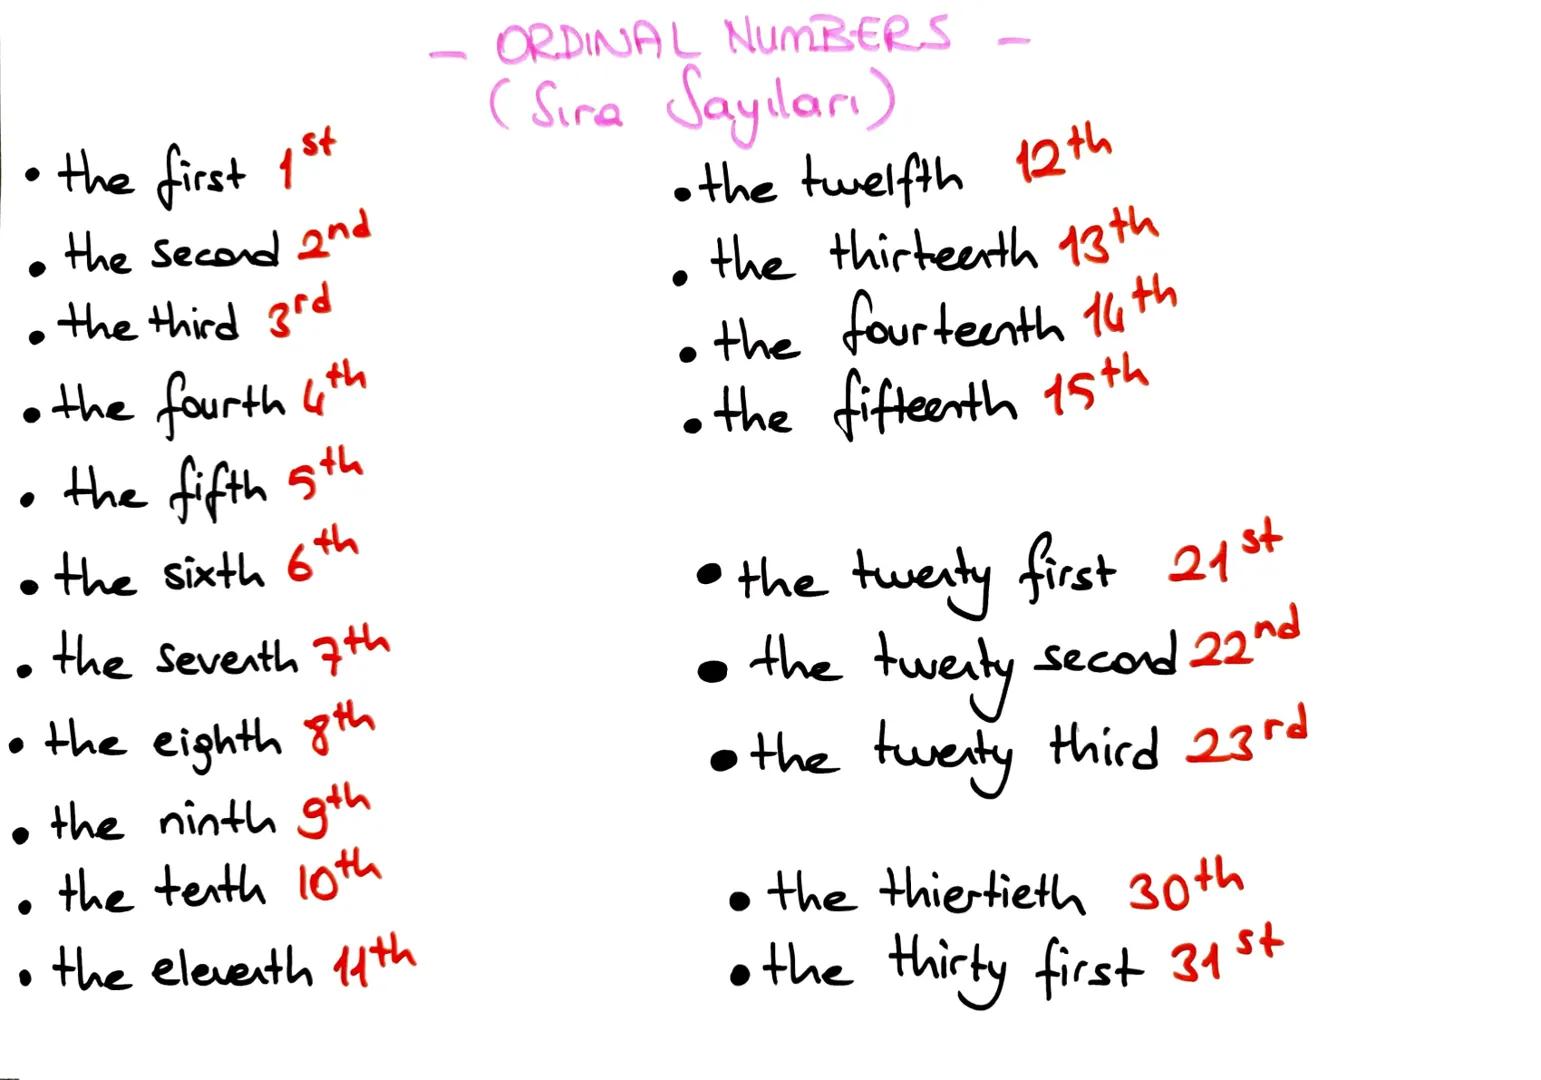 - ORDINAL NUMBERS -
(Sıra Sayıları)
• the first 1st
• the second 2nd
• the third 3rd
• the fourth 4th
• the fifth 5th
• the sixth 6th
• the seventh 7th
• the eighth 8th
• the ninth 9th
• the tenth 10th
• the eleventh 11th
• the twelfth 12th
• the thirteenth 13th
• the fourteenth 14th
• the fifteenth 15th
• the twenty first 21st
• the twenty second 22nd
• the twenty third 23rd
• the thiertieth 30th
• the thirty first 31st